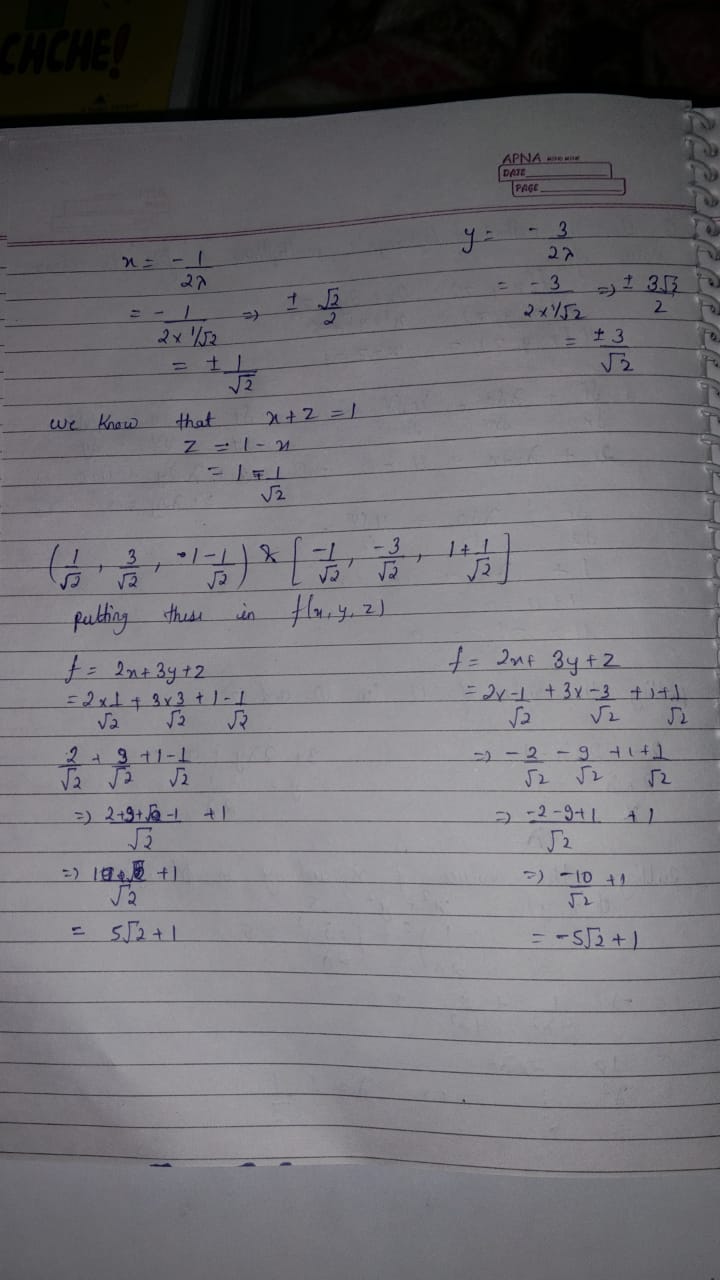 CHCHE!
APNA
DATE
PAGE
x = - 1/2λ
= - 1/(2×1/√2) => ± √2/2
= ± 1/√2
y = - 3/2λ
= - 3/(2×1/√2) => ± 3√2/2
= ± 3/√2
we know that x+z=1
z = 1-x
= 1 ∓ 1/√2
(1/√2, 3/√2, 1 - 1/√2) & [-1/√2, -3/√2, 1+1/√2]
putting these in f(x,y,z)
f = 2x+3y+z
= 2×1/√2 + 3×3/√2 + 1 - 1/√2
2/√2 + 9/√2 + 1 - 1/√2
=> (2+9-1)/√2 + 1
=> 10/√2 + 1
= 5√2+1
f = 2x+ 3y+z
= 2×-1/√2 + 3×-3/√2 + 1+1/√2
=> -2/√2 - 9/√2 +1+1/√2
=> (-2-9+1)/√2 +1
=> -10/√2 +1
= -5√2+1